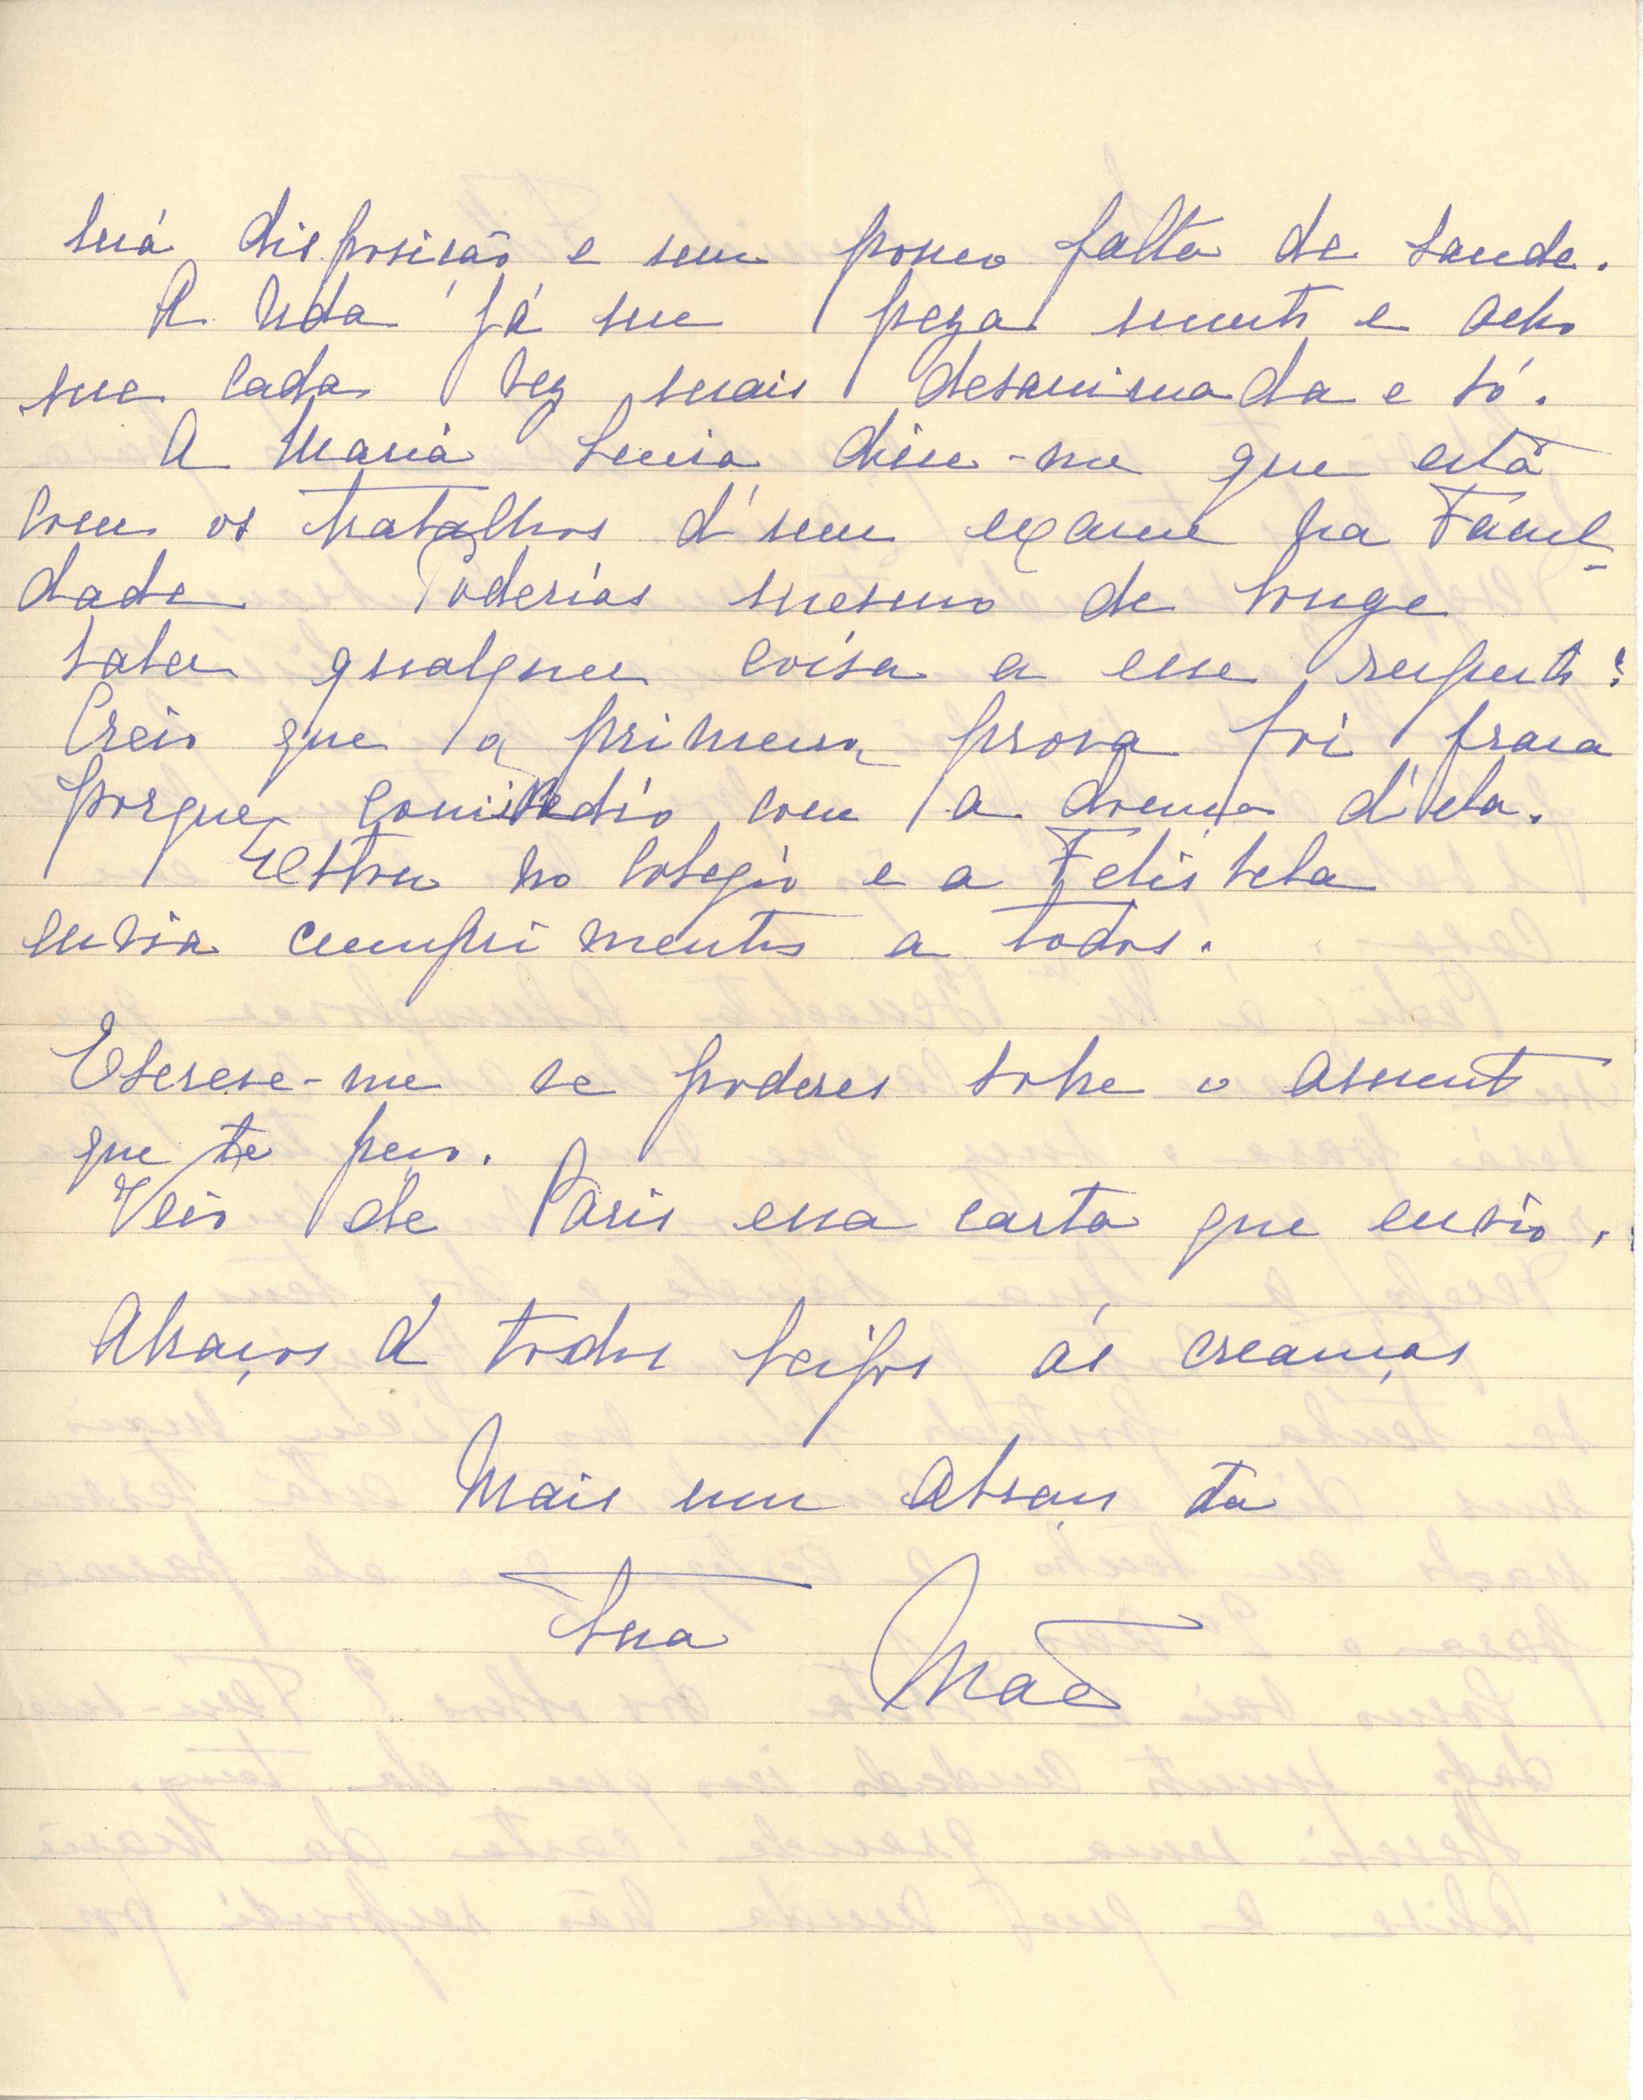 má disposição e um pouco falta de saude.
A vida já me peza muito e acho
me cada vez mais desanimada e só.
A Maria Lucia disse-me que está
com os trabalhos d' seu exame na Facul-
dade Poderias mesmo de longe
saber qualquer coisa a esse respeito?
Creio que a primeira prova foi fraca
porque coincidio com a doença d'ela.
Estou no Colegio e a Felisbela
envia cumprimentos a todos.
Escreve-me se poderes sobre o assunto
que te peço.
Veio de Paris essa carta que envio.
Abraços á todos beijos ás creanças
Mais um abraço da
tua Mãe